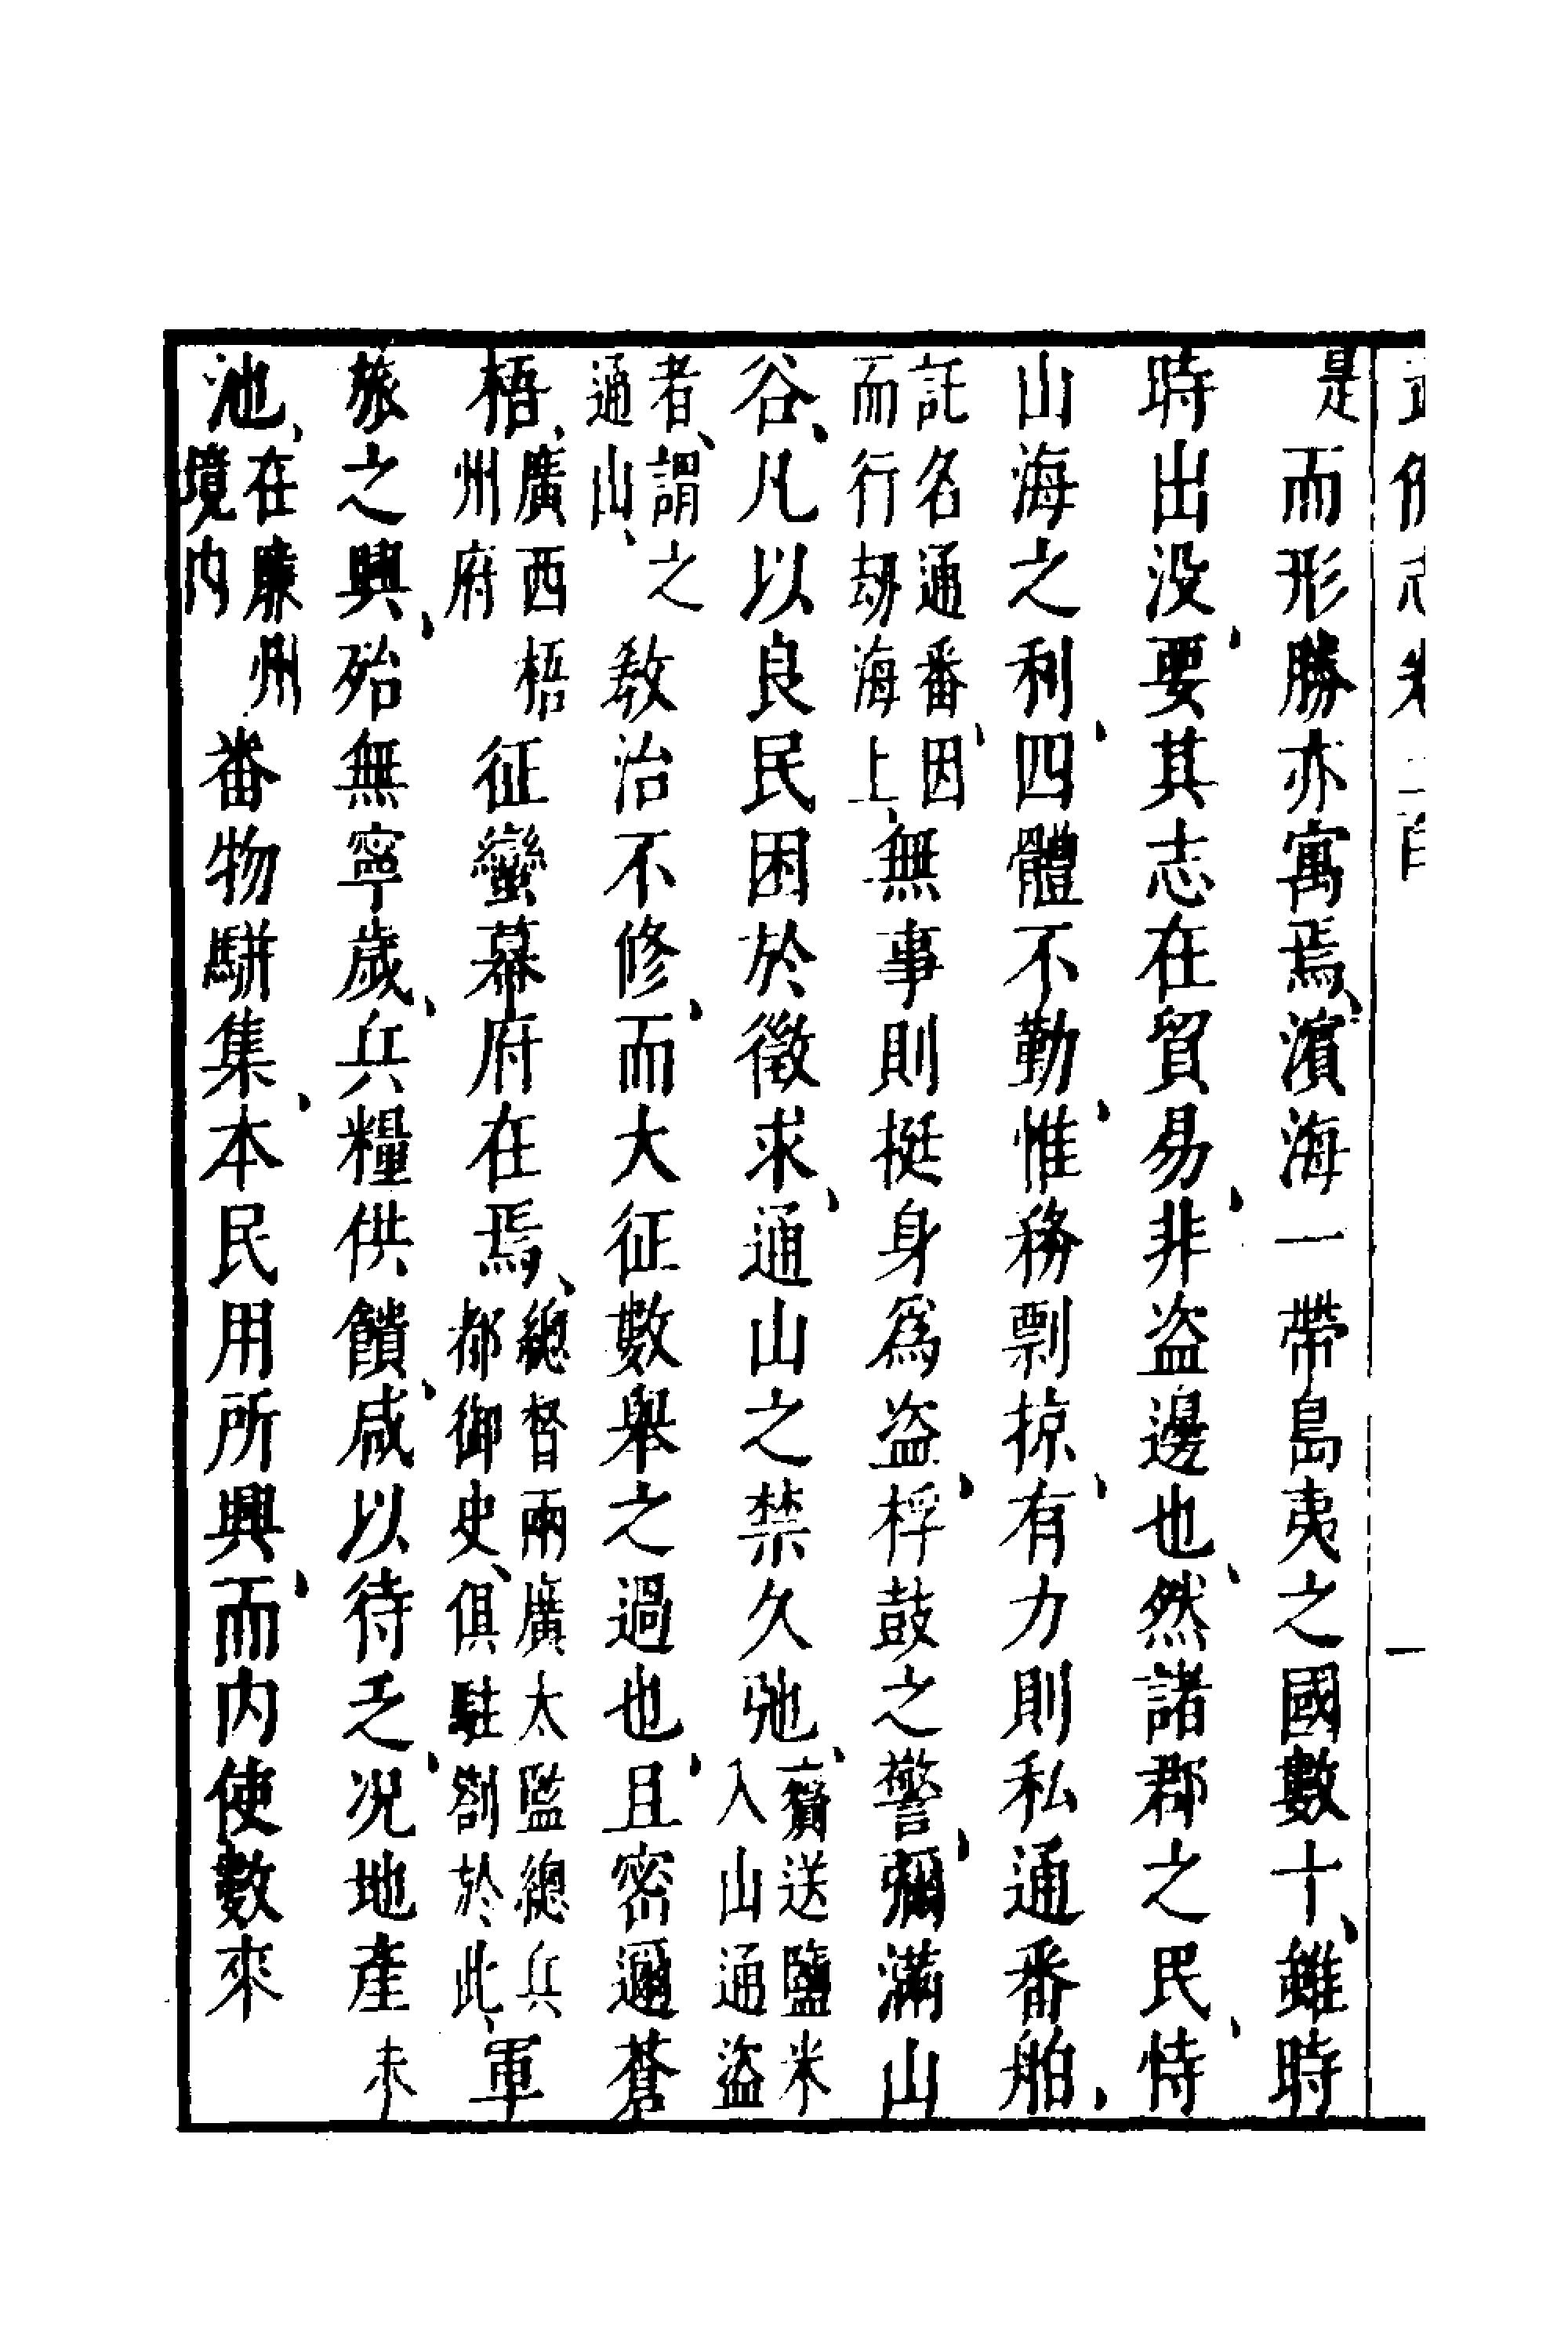 是而形勝亦寓焉、濱海一帶島夷之國數十、雖時
時出没、要其志在貿易、非盜邊也、然諸郡之民、恃
山海之利、四體不勤、惟務剽掠、有力則私通番舶、
託名通番、因而行劫海上、無事則挺身爲盜、桴鼓之警、彌滿山
谷、凡以良民困於徵求、通山之禁久弛、齎送鹽米入山通盜
者、謂之通山、教治不修、而大征數舉之過也、且密邇蒼
梧、廣西梧州府征蠻幕府在焉、總督兩廣太監總兵都御史、俱駐劄於此、軍
旅之興、殆無寧歲、兵糧供饋、咸以待乏、况地產未
池、在廉州境内番物駢集、本民用所興、而内使數來